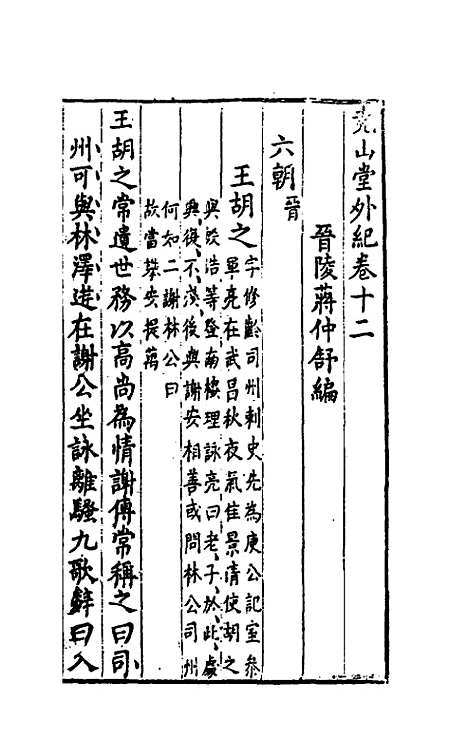 堯山堂外紀卷十二
晉陵蔣仲舒編
六朝 晉
王胡之
字修齡司州刺史先為庾公記室參
軍亮在武昌秋夜氣佳景清使胡之
與殷浩等登南樓理詠亮曰老子於此處
興復不淺後與謝安相善或問林公司州
何如二謝林公曰
故當攀安提萬
王胡之常遺世務以高尚為情謝傅常稱之曰司
州可與林澤遊在謝公坐詠離騷九歌辭曰入